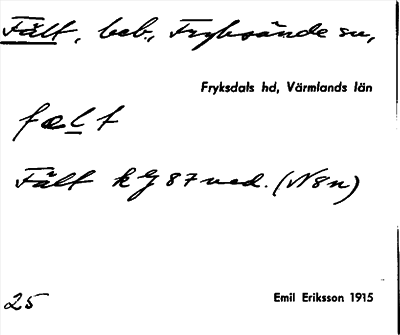 Fält, beb., Fryksände sn,
Fryksdals hd, Värmlands län
fælt
Fält kg 87 ned. (N8n)
25
Emil Eriksson 1915